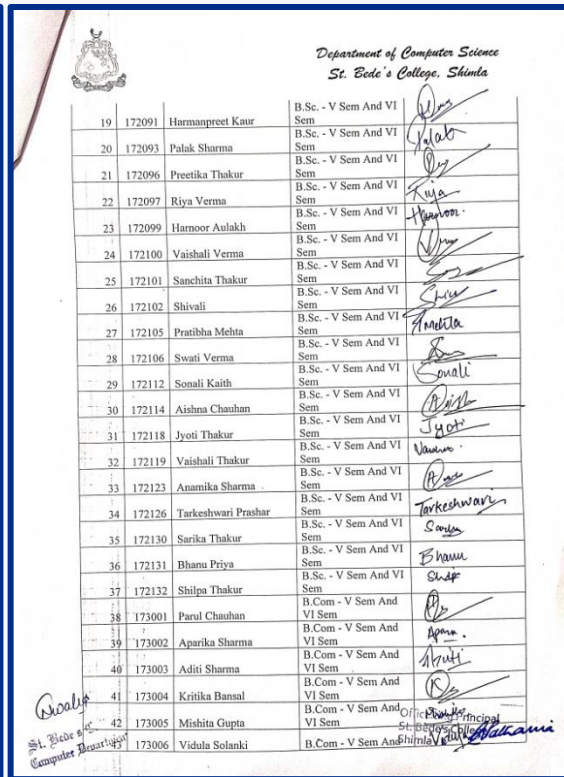 Department of Computer Science
St. Bede's College, Shimla
19 172091 Harmanpreet Kaur B.Sc. - V Sem And VI Sem
20 172093 Palak Sharma B.Sc. - V Sem And VI Sem Palak
21 172096 Preetika Thakur B.Sc. - V Sem And VI Sem
22 172097 Riya Verma B.Sc. - V Sem And VI Sem Riya
23 172099 Harnoor Aulakh B.Sc. - V Sem And VI Sem Harnoor.
24 172100 Vaishali Verma B.Sc. - V Sem And VI Sem
25 172101 Sanchita Thakur B.Sc. - V Sem And VI Sem
26 172102 Shivali B.Sc. - V Sem And VI Sem
27 172105 Pratibha Mehta B.Sc. - V Sem And VI Sem
28 172106 Swati Verma B.Sc. - V Sem And VI Sem
29 172112 Sonali Kaith B.Sc. - V Sem And VI Sem Sonali
30 172114 Aishna Chauhan B.Sc. - V Sem And VI Sem
31 172118 Jyoti Thakur B.Sc. - V Sem And VI Sem Jyoti
32 172119 Vaishali Thakur B.Sc. - V Sem And VI Sem
33 172123 Anamika Sharma B.Sc. - V Sem And VI Sem
34 172126 Tarkeshwari Prashar B.Sc. - V Sem And VI Sem Tarkeshwari
35 172130 Sarika Thakur B.Sc. - V Sem And VI Sem
36 172131 Bhanu Priya B.Sc. - V Sem And VI Sem Bhanu
37 172132 Shilpa Thakur B.Sc. - V Sem And VI Sem
38 173001 Parul Chauhan B.Com - V Sem And VI Sem
39 173002 Aparika Sharma B.Com - V Sem And VI Sem
40 173003 Aditi Sharma B.Com - V Sem And VI Sem
41 173004 Kritika Bansal B.Com - V Sem And VI Sem
42 173005 Mishita Gupta B.Com - V Sem And VI Sem
43 173006 Vidula Solanki B.Com - V Sem And
Principal
St. Bede's College
Shimla
St. Bede's C
Computer Department